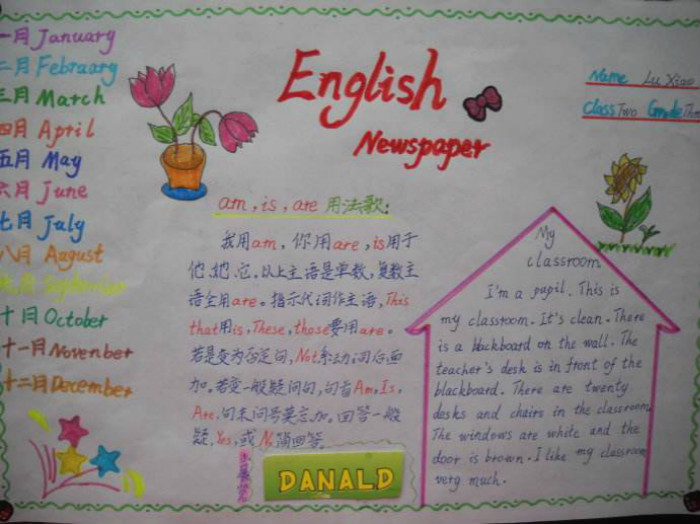 一月 January
二月 February
三月 March
四月 April
五月 May
六月 June
七月 July
八月 August
九月 September
十月 October
十一月 Novenber
十二月 December
English
Newspaper
Name Lu Xiao
Class Two Grade
am, is, are 用法歌:
我用am, 你用are, is用于
他,她,它。以上主语是单数,复数主
语全用are。指示代词作主语, This
that用is, These, those要用are。
若是变为否定句, Not系动词后面
加。若变一般疑问句, 句首Am, Is,
Are, 句末问号莫忘加。回答一般
疑, Yes, 或No 回答
DANALD
My
classroom
I'm a pupil. This is
my classroom. It's clean. There
is a blackboard on the wall. The
teacher's desk is in front of the
blackboard. There are twenty
desks and chairs in the classroom
The windows are white and the
door is brown. I like my classroom
very much.